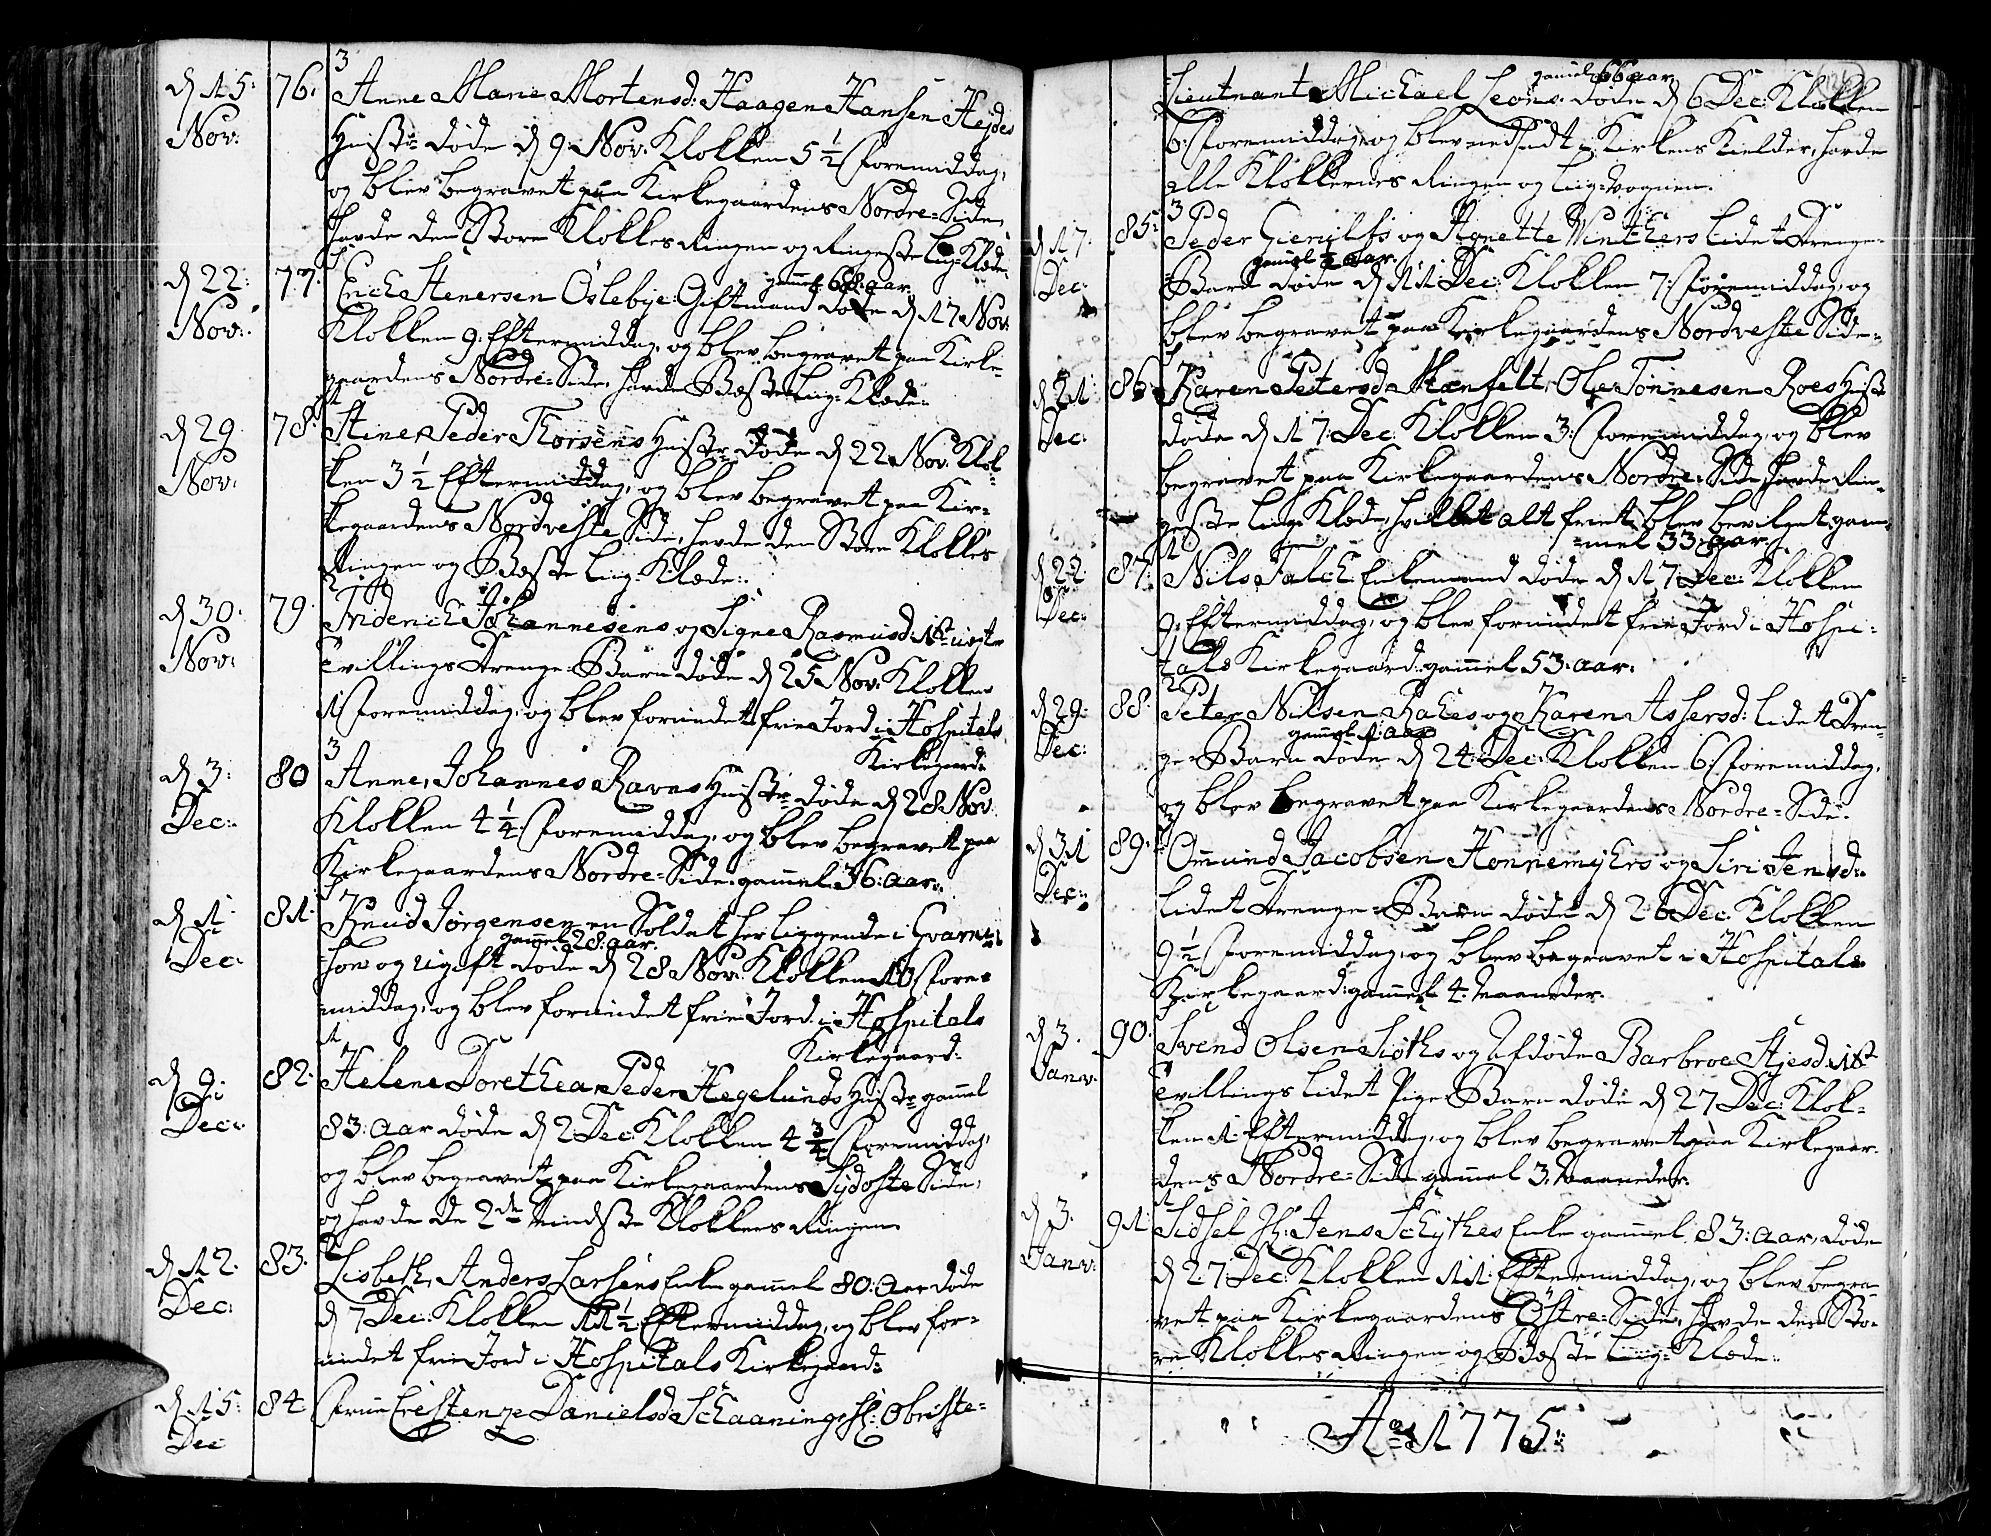 d 15: Nov: 76. 3
Anne Marie Mortensd: Haagen Hansen Hejdes
Hustr: døde d 9 Nov. Klokken 5 1/2 Formiddag,
og blev begravet paa Kirkegaardens Nordre-Side,
havde den Store Klokkes Ringen og Ringeste Liig-Klæde.
d 22: Nov: 77.
Erich Henersen Oslebye: Giftmand gamel 68: aar. døde d 17 Nov:
Klokken 9. Eftermiddag, og blev begravet paa Kirke-
gaardens Nordre-Side, havde Bæste Liig-Klæde.
d 29 Nov: 78. 1
Stine, Peder Thorsens Hustr: døde d 22 Nov. Klok-
ken 3 1/2 Eftermiddag, og blev begravet paa Kir-
kegaardens Nordveste Side, havde den Store Klokkes
Ringen og Bæste Liig-Klæde.
d 30: Nov: 79. 2
Friderich Johannesens og Signe Rasmusd: 1st: uægte
Tvillings Drenge-Barn døde d 25 Nov. Klokken
1 Formiddag, og blev forundet frie Jord i Hospitals
Kirkegaard:
d 3: Dec: 80 3
Anne, Johannes Ravns Hustr: døde d 28 Nov:
Klokken 4 1/4: Formiddag, og blev begravet paa
Kirkegaardens Nordre-Side: gamel 36: aar.
d 1: Dec: 81. 1
Knud Jørgensen, en Soldat her liggende i Gvarni-
son og ugift gamel 28: aar. døde d 28 Nov: Klokken 10 Fore-
middag, og blev forundet frie Jord i Hospitals
Kirkegaard:
d 9: Dec: 82. 1
Helene Dorethea, Peder Hegelunds Hustr: gamel
83: aar døde d 2 Dec: Klokken 4 3/4 Formiddag,
og blev begravet paa Kirkegaardens Sydoste Side,
og havde de 2de Mindste Klokkers Ringen.
d 12. Dec: 83. 2
Lisbeth, Anders Larsens Enke gamel 80: Aar døde
d 7 Dec: Klokken 11 1/2: Eftermiddag, og blev for-
undet frie Jord i Hospitals Kirkegaard:
d 15: Dec 84.
Frue Cristenze Danielsd: Schaaning, Sl: Obriste-
Lieutnant Michael Leons: gamel 66 aar døde d 6 Dec: Klokken
6: Formiddag, og blev nedsadt i Kirkens Kielder, havde
alle Klokkernes Ringen og Liig-Vognen.
d 17. Dec: 85. 3
Peder Gierulfs og Agnette Winthers lidet Drenge-
Barn gamel 1/2 aar. døde d 11 Dec: Klokken 7: Formiddag, og
blev begravet paa Kirkegaardens Nordveste Side.
d 21: Dec: 86. 1
Karen Petersd: Manfelt, Ole Tønnesen Roes Hustr:
døde d 17: Dec. Klokken 3: Formiddag, og blev
begravet paa Kirkegaardens Nordre-Side, havde Rin-
geste Liig-Klæde, hvilket alt friet blev bevilget, gam-
mel 33: aar.
d 22 Dec: 87. 1
Nils Falch: Enkemand døde d 17 Dec: Klokken
9: Eftermiddag, og blev forundet frie Jord i Hospi-
tals Kirkegaard: gamel 53: aar.
d 29: Dec: 88. 2
Peter Nilsen Rakes og Karen Assersd: lidet Dren-
ge-Barn gamel 1: aar døde d 24: Dec: Klokken 6: Formiddag,
og blev begravet paa Kirkegaardens Nordre-Side.
d 31 Dec: 89. 3
Omund Jacobsen Honnemyhrs og Siri Jensd:
lidet Drenge-Barn døde d 26 Dec: Klokken
9 1/2 Formiddag, og blev begravet i Hospitals
Kirkegaard: gamel 4: Maaneder.
d 3. Janv: 90.
Svend Olsen Siøths og Afdøde Barbroe Stiesd: 1st
Tvillings lidet Pige-Barn døde d 27 Dec: Klok-
ken 1: Eftermiddag, og blev begravet paa Kirkegaar-
dens Nordre-Side gamel 3. Maaneder.
d 3. Janv: 91. 1
Sidsel Sl: Jens Schythes Enke gamel 83: aar, døde
d 27 Dec: Klokken 11: Eftermiddag, og blev begra-
vet paa Kirkegaardens Østre-Side, havde den Sto-
re Klokkes Ringen og Bæste Liig-Klæde.
Ao 1775: